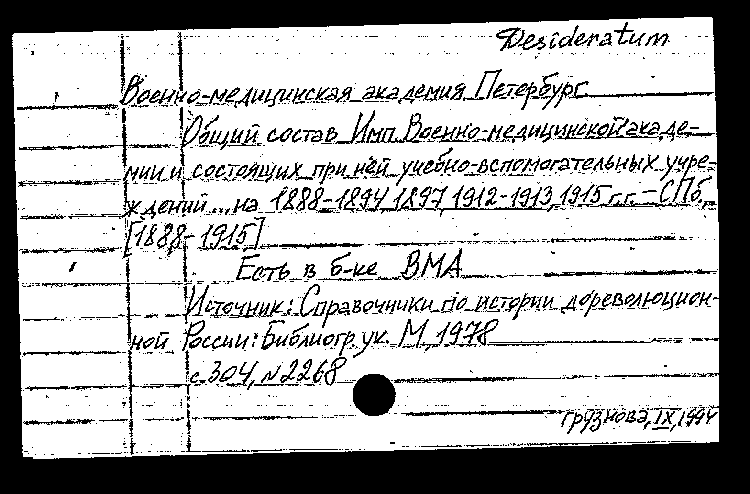 Desideratum
Военно-медицинская академия Петербург
Общий состав Имп. Военно-медицинской акаде-
мии и состоящих при ней учебно-вспомогательных учре-
ждений... на 1888-1894, 1897, 1912-1913, 1915 г.г. - СПб,
[1888-1915]
Есть в б-ке ВМА
Источник: Справочники по истории дореволюцион-
ной России: Библиогр. ук. М, 1978
с. 304, N 2268
Грузнова, IX, 1994